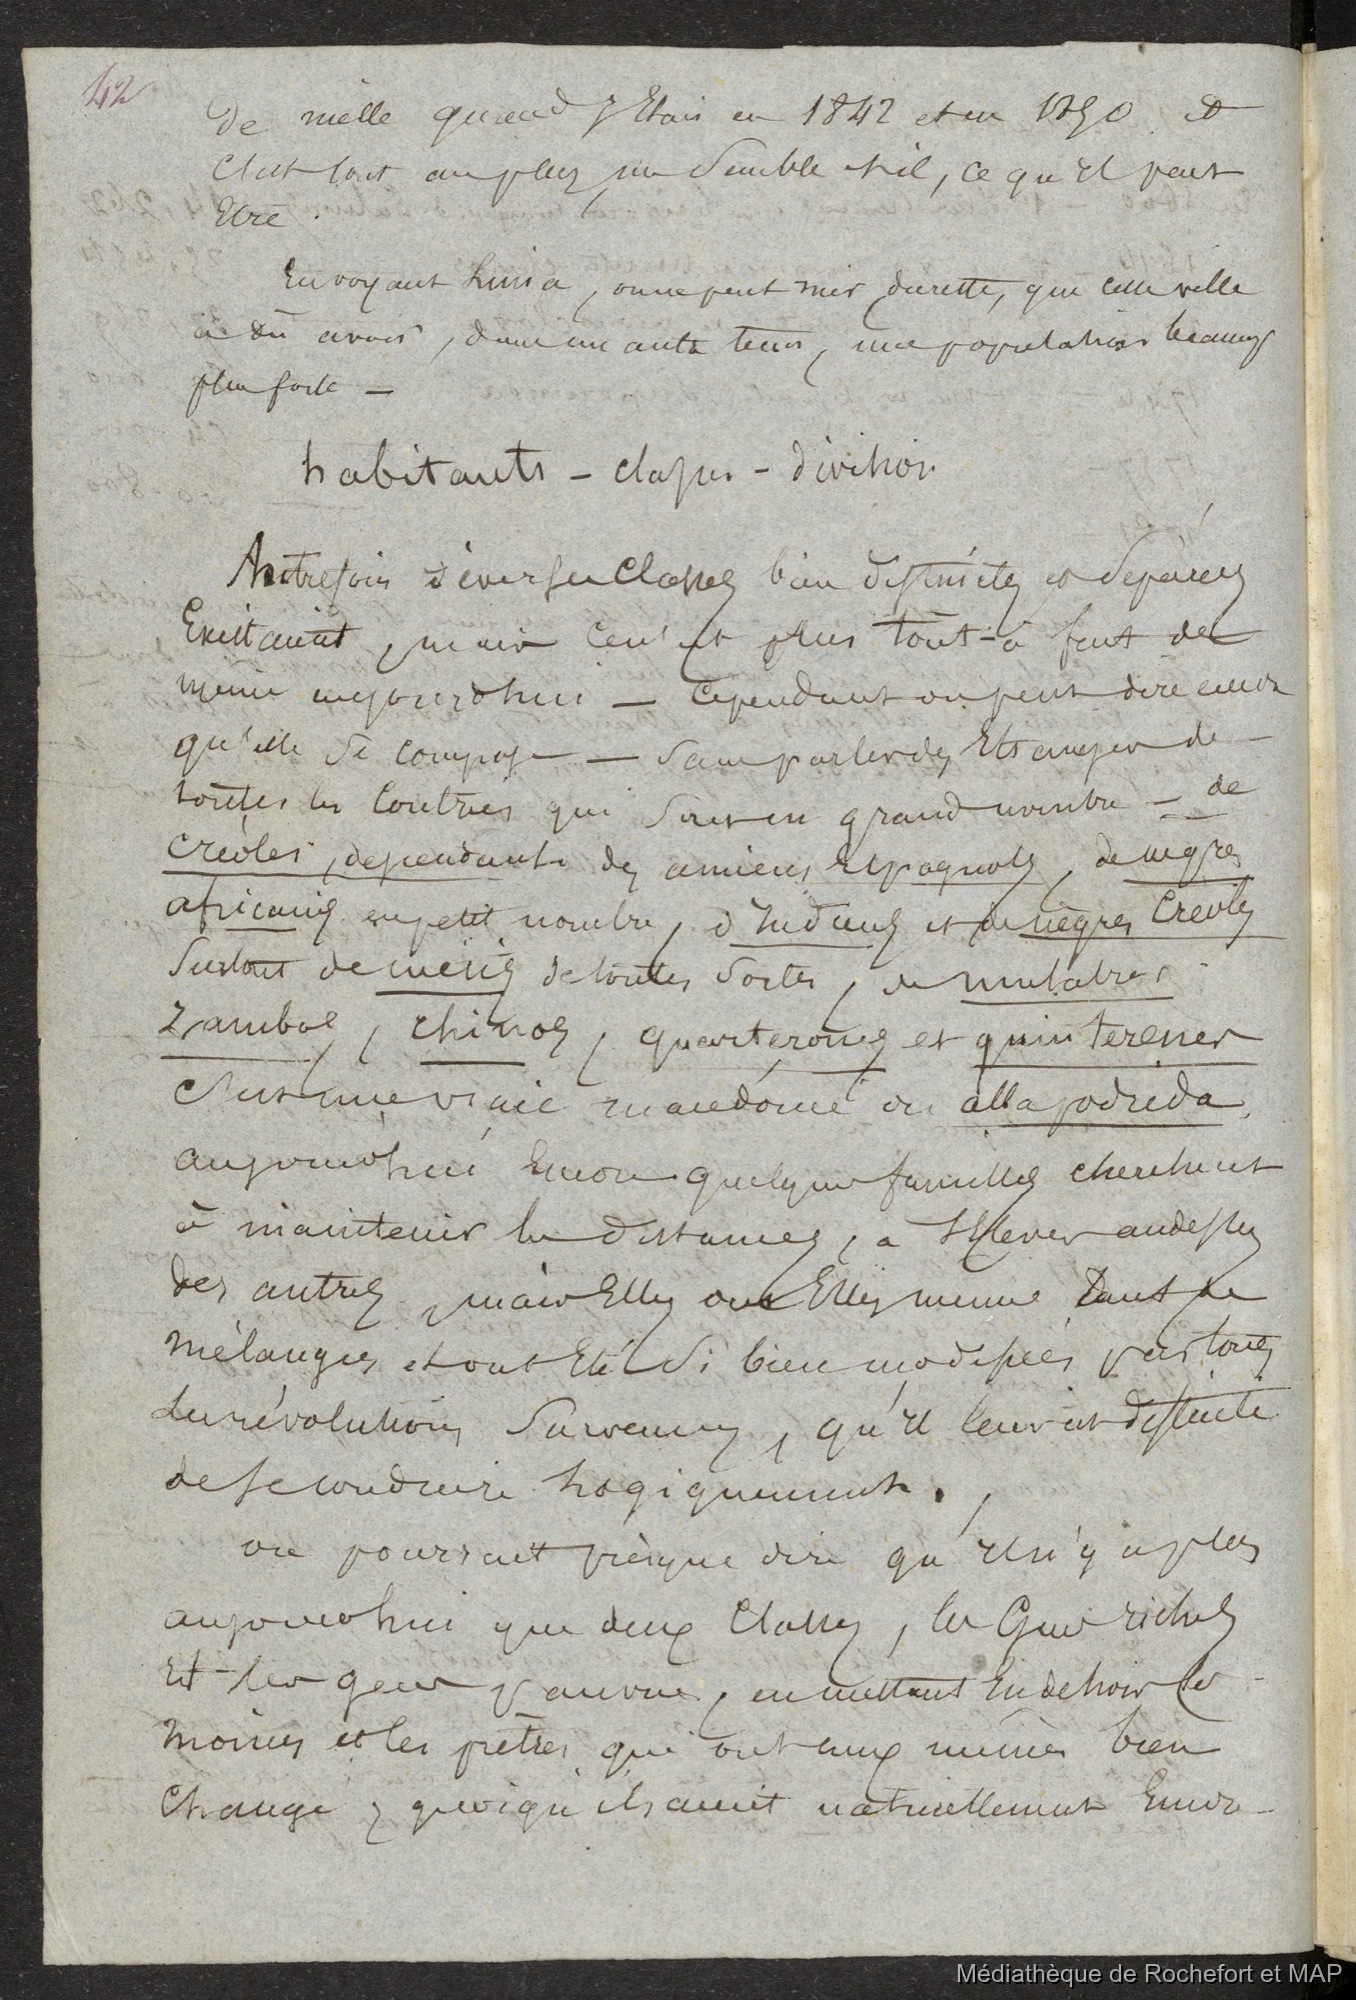 42
de mille quand j'Etais en 1842 et en 1850. et
C'est tout au plus, me Semble t-il, ce qu'il peut
Etre.
En voyant Lima, on ne peut nier, du reste, que cette ville
a dû avoir, dans un autre tems, une population beaucoup
plus forte —
habitants - classes - division
Autrefois diverses Classes bien distinctes et séparées
Existaient, mais ce n'est plus tout-à fait de
même aujourd'hui — Cependant on peut dire encore
qu'elle Se compose — Sans parler des Etrangers de
toutes les Contrées qui Sont en grand nombre — de
Créoles, dependants des anciens Espagnols, de negres
africains en petit nombre, d'Indiens et de nègres Créoles
Surtout de métis de toutes Sortes, de mulatres
Zambos, Chinos, quarterones et quinterones
C'est une vraie macédoine ou olla podrida,
aujourd'hui Encore quelques familles cherchent
à maintenir les distances, à S'Elever audessus
des autres, mais Elles ont Elles même tant de
mélanges et ont Eté Si bien modifiées par toutes
les révolutions Survenues, qu'il leur est difficile
de se conduire logiquement.
on pourrait presque dire qu'il n'y a plus
aujourd'hui que deux Classes, les Gens riches
Et les gens pauvres, en mettant En dehors les
moines et les prêtres qui ont eux mêmes bien
Changé, quoiqu'ils aient naturellement Encore
Médiathèque de Rochefort et MAP